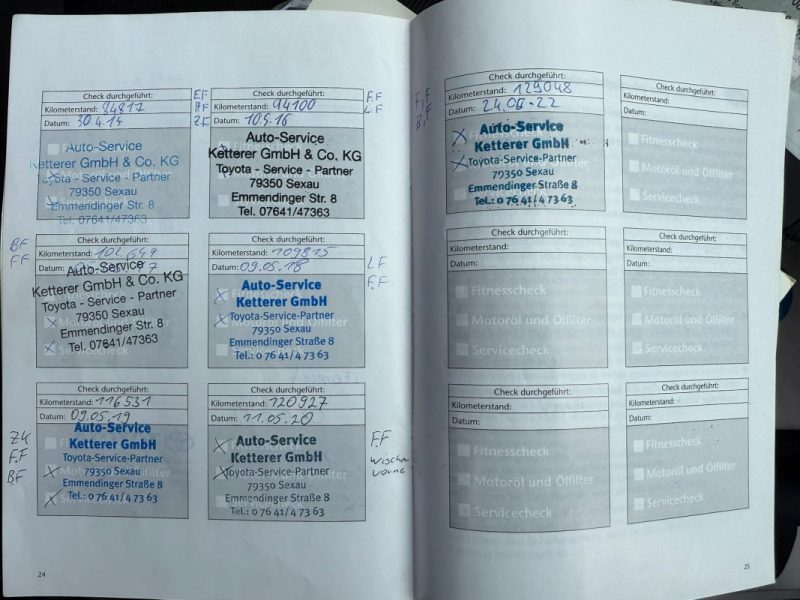 Check durchgeführt:
Kilometerstand: 84817
Datum: 30.4.14
Auto-Service
Ketterer GmbH & Co. KG
Toyota - Service - Partner
79350 Sexau
Emmendinger Str. 8
Tel. 07641/47363
E.F
Check durchgeführt:
Kilometerstand: 94100
Datum: 10.5.16
Auto-Service
Ketterer GmbH & Co. KG
Toyota - Service - Partner
79350 Sexau
Emmendinger Str. 8
Tel. 07641/47363
E.F
L.F
BF
FF
Check durchgeführt:
Kilometerstand: 102 649
Datum:
Auto-Service
Ketterer GmbH & Co. KG
Toyota - Service - Partner
79350 Sexau
Emmendinger Str. 8
Tel. 07641/47363
Check durchgeführt:
Kilometerstand: 109815
Datum: 09.05.18
Auto-Service
Ketterer GmbH
Toyota-Service-Partner
79350 Sexau
Emmendinger Straße 8
Tel.: 0 76 41/4 73 63
LF
E.F
Check durchgeführt:
Kilometerstand: 116531
Datum: 09.05.19
Auto-Service
Ketterer GmbH
Toyota-Service-Partner
79350 Sexau
Emmendinger Straße 8
Tel.: 0 76 41/4 73 63
ZK
F.F
BF
Check durchgeführt:
Kilometerstand: 120927
Datum: 11.05.20
Auto-Service
Ketterer GmbH
Toyota-Service-Partner
79350 Sexau
Emmendinger Straße 8
Tel.: 0 76 41/4 73 63
F.F
vorne
24
F.F
B.F
Check durchgeführt:
Kilometerstand: 129048
Datum: 24.06.22
Auto-Service
Ketterer GmbH
Toyota-Service-Partner
79350 Sexau
Emmendinger Straße 8
Tel.: 0 76 41/4 73 63
Check durchgeführt:
Kilometerstand:
Datum:
Fitnesscheck
Motoröl und Ölfilter
Servicecheck
Check durchgeführt:
Kilometerstand:
Datum:
Fitnesscheck
Motoröl und Ölfilter
Servicecheck
Check durchgeführt:
Kilometerstand:
Datum:
Fitnesscheck
Motoröl und Ölfilter
Servicecheck
Check durchgeführt:
Kilometerstand:
Datum:
Fitnesscheck
Motoröl und Ölfilter
Servicecheck
Check durchgeführt:
Kilometerstand:
Datum:
Fitnesscheck
Motoröl und Ölfilter
Servicecheck
25